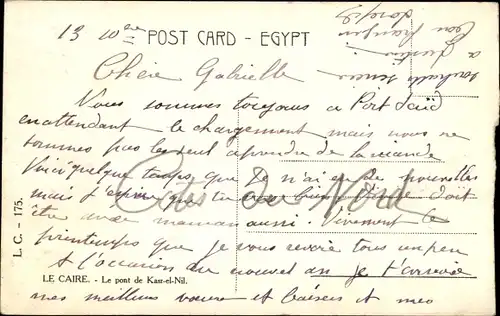 13 10bre
POST CARD - EGYPT
Chère Gabrielle
Vous sommes toujours a Port Saïd
en attendant le chargement mais nous ne
sommes pas les seul a prendre de la viande
Voici quelque temps, que Je n'ai eu de nouvelles
mais J'espère que tu es bien doit
être avec maman aussi Vivement le
printemps que je vous revoie tous un peu
a l'occasion du nouvel an je t'envoie
mes meilleurs voeux et baisers et mes
souhaits
a
Jean François
Joseph
Côtes du Nord
L. C. - 175.
LE CAIRE. - Le pont de Kasr-el-Nil.